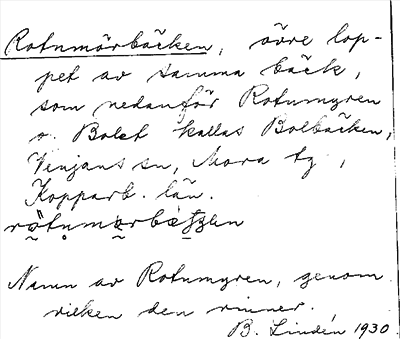 Rotnmörbäcken, övre lop-
pet av samma bäck,
som nedanför Rotnmyren
o. Bolet kallas Bolbäcken,
Venjans sn, Mora tg,
Kopparb. län.
Namn av Rotnmyren, genom
vilken den rinner.
B. Lindén, 1930.